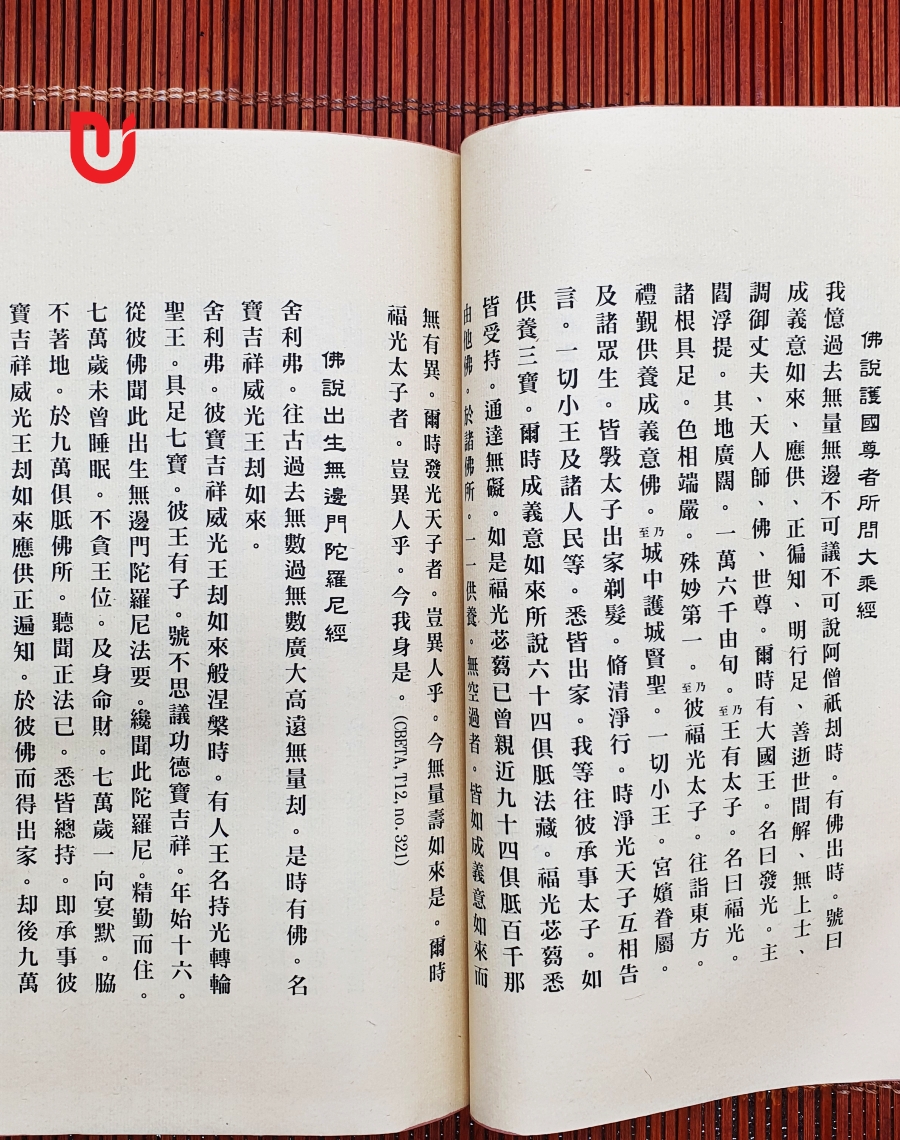 佛說護國尊者所問大乘經
我憶過去無量無邊不可議不可說阿僧祇刦時。有佛出時。號曰
成義意如來、應供、正徧知、明行足、善逝世間解、無上士、
調御丈夫、天人師、佛、世尊。爾時有大國王。名曰發光。主
閻浮提。其地廣闊。一萬六千由旬。乃至王有太子。名曰福光。
諸根具足。色相端嚴。殊妙第一。乃至彼福光太子。往詣東方。
禮覲供養成義意佛。乃至城中護城賢聖。一切小王。宮嬪眷屬。
及諸眾生。皆斅太子出家剃髮。脩清淨行。時淨光天子互相告
言。一切小王及諸人民等。悉皆出家。我等往彼承事太子。如
供養三寶。爾時成義意如來所說六十四俱胝法藏。福光苾蒭悉
皆受持。通達無礙。如是福光苾蒭已曾親近九十四俱胝百千那
由他佛。於諸佛所。一一供養。無空過者。皆如成義意如來而
無有異。爾時發光天子者。豈異人乎。今無量壽如來是。爾時
福光太子者。豈異人乎。今我身是。((CBETA, T12, no. 321)
佛說出生無邊門陀羅尼經
舍利弗。往古過去無數過無數廣大高遠無量刦。是時有佛。名
寶吉祥威光王刦如來。
舍利弗。彼寶吉祥威光王刦如來般涅槃時。有人王名持光轉輪
聖王。具足七寶。彼王有子。號不思議功德寶吉祥。年始十六。
從彼佛聞此出生無邊門陀羅尼法要。纔聞此陀羅尼。精勤而住。
七萬歲未曾睡眠。不貪王位。及身命財。七萬歲一向宴默。脇
不著地。於九萬俱胝佛所。聽聞正法已。悉皆總持。即承事彼
寶吉祥威光王刦如來應供正遍知。於彼佛而得出家。却後九萬